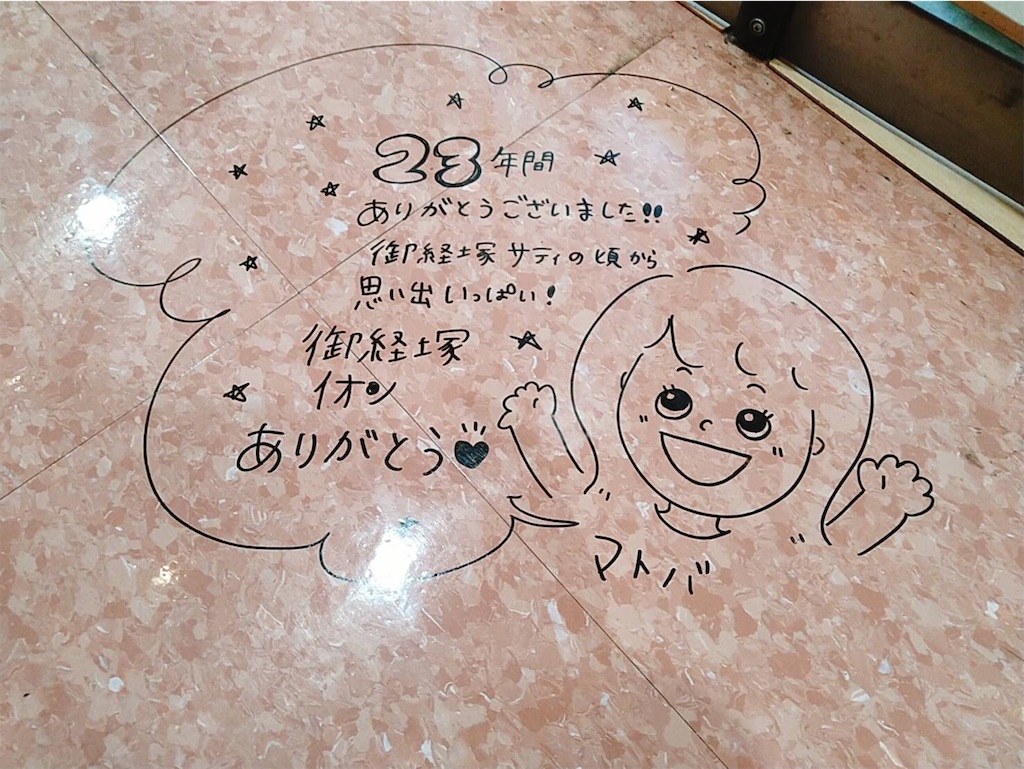 23年間
ありがとうございました!!
御経塚サティの頃から
思い出いっぱい!
御経塚
イオン
ありがとう
マトバ